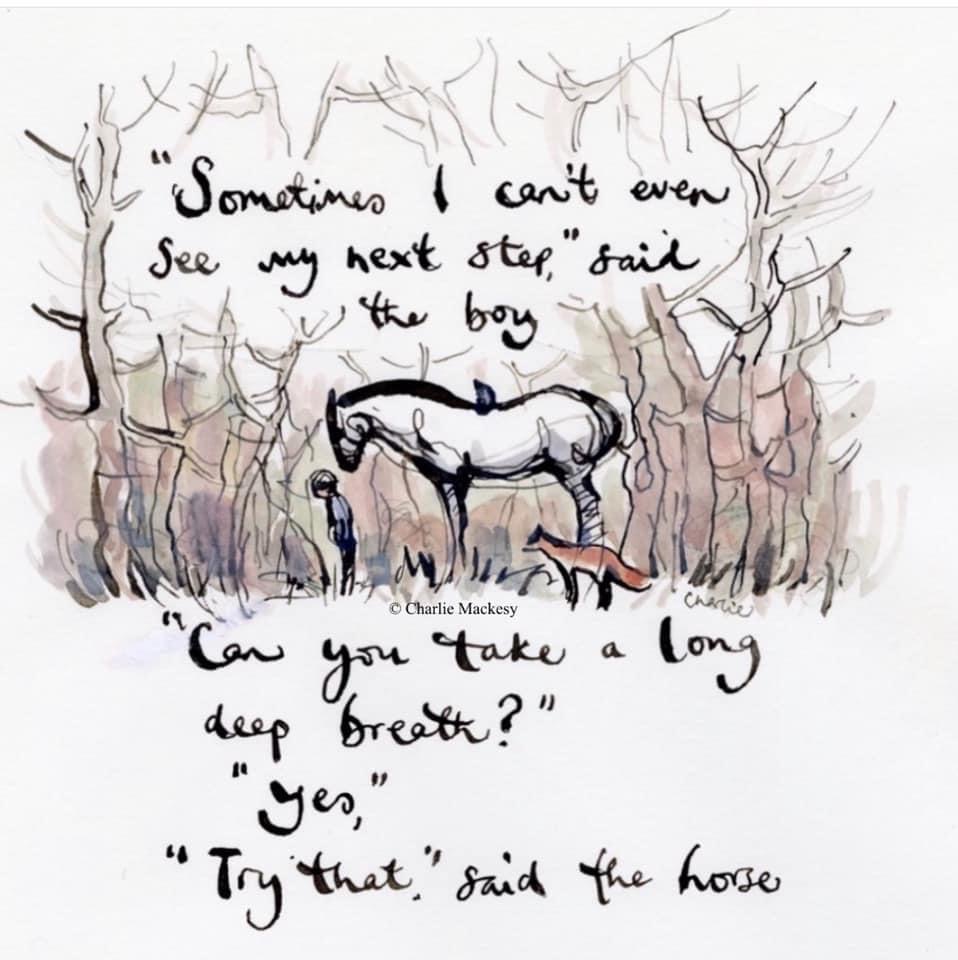 "Sometimes I can't even
see my next step," said
the boy
Charlie
© Charlie Mackesy
"Can you take a long
deep breath?"
"Yes,"
"Try that." said the horse